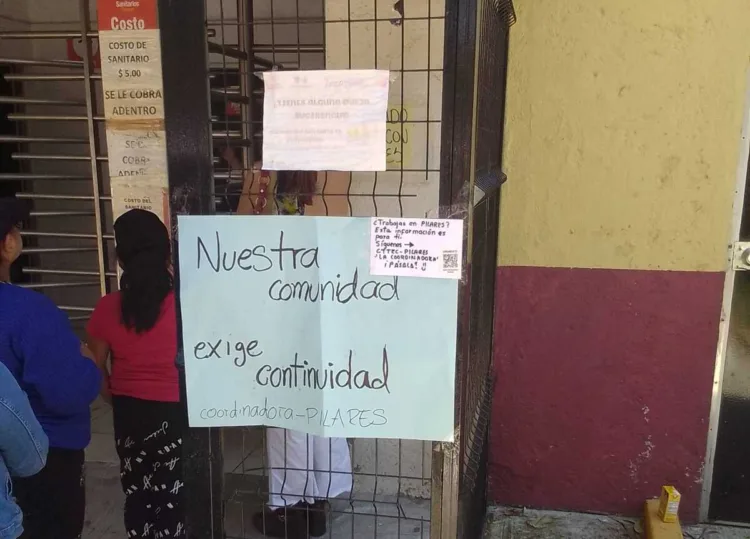 Sanitarios
Costo
COSTO DE
SANITARIO
$ 5.00
SE LE COBRA
ADENTRO
SE
COBR
COSTO DEL
SANITARIO
CON
EL
¿Trabajas en PILARES?
Esta información es
para ti.
Síguenos →
CYTEC-PILARES
"LA COORDINADORA"
¡PÁSALA!
Nuestra
comunidad
exige
continuidad
coordinadora-PILARES